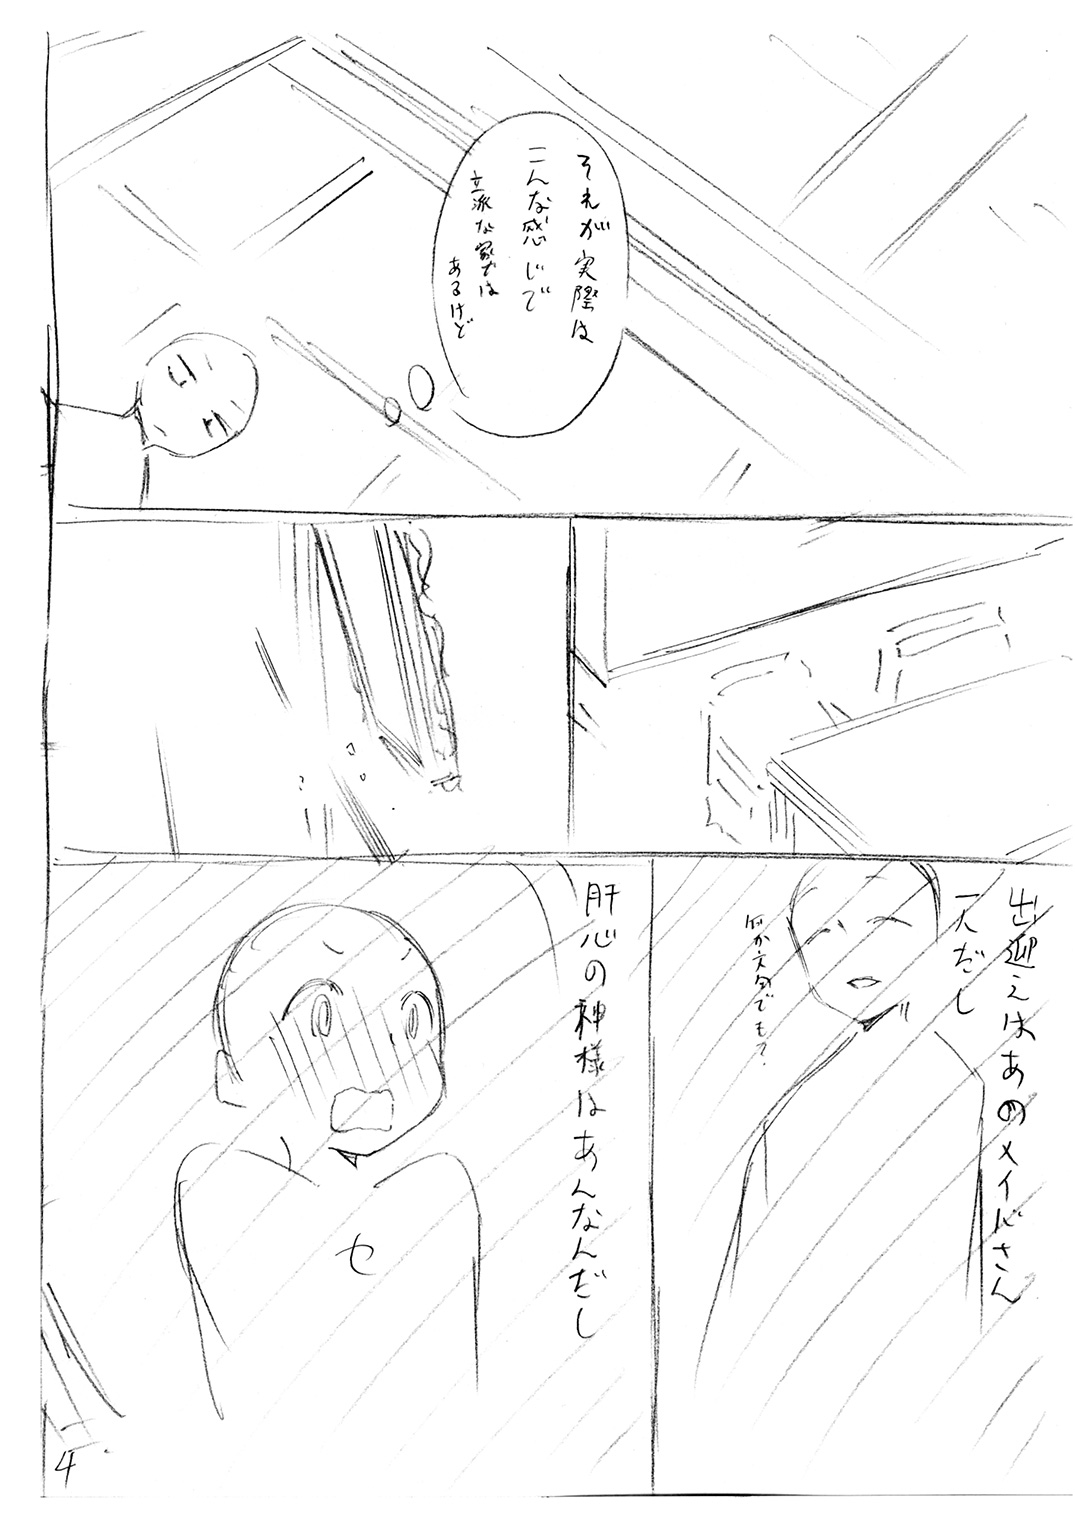 それが実際は
こんな感じで
立派な家では
あるけど
出迎えはあのメイドさん
一人だし
何か文句でも?
肝心の神様はあんなんだし
セ
4